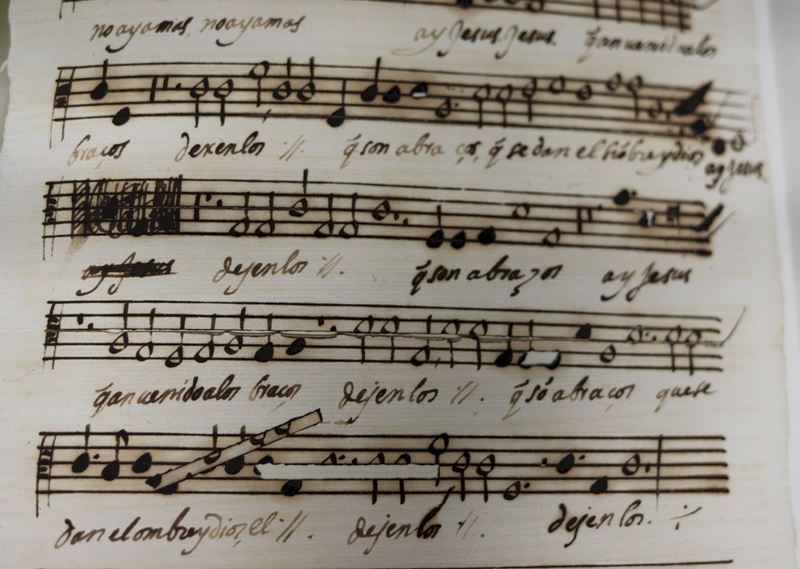 no ayamas no ayamas ay Jesus Jesus q̃ an uenido a los
braços dexenlos :// q̃ son abra ços, q̃ se dan el hõbre y dios ay Jesus
ay Jesus dejenlos ://. q̃ son abraços ay Jesus
q̃ an uenido a los braços dejenlos ://. q̃ sõ abraços que se
dan el ombre y dios, el ://. dejenlos ://. dejenlos.